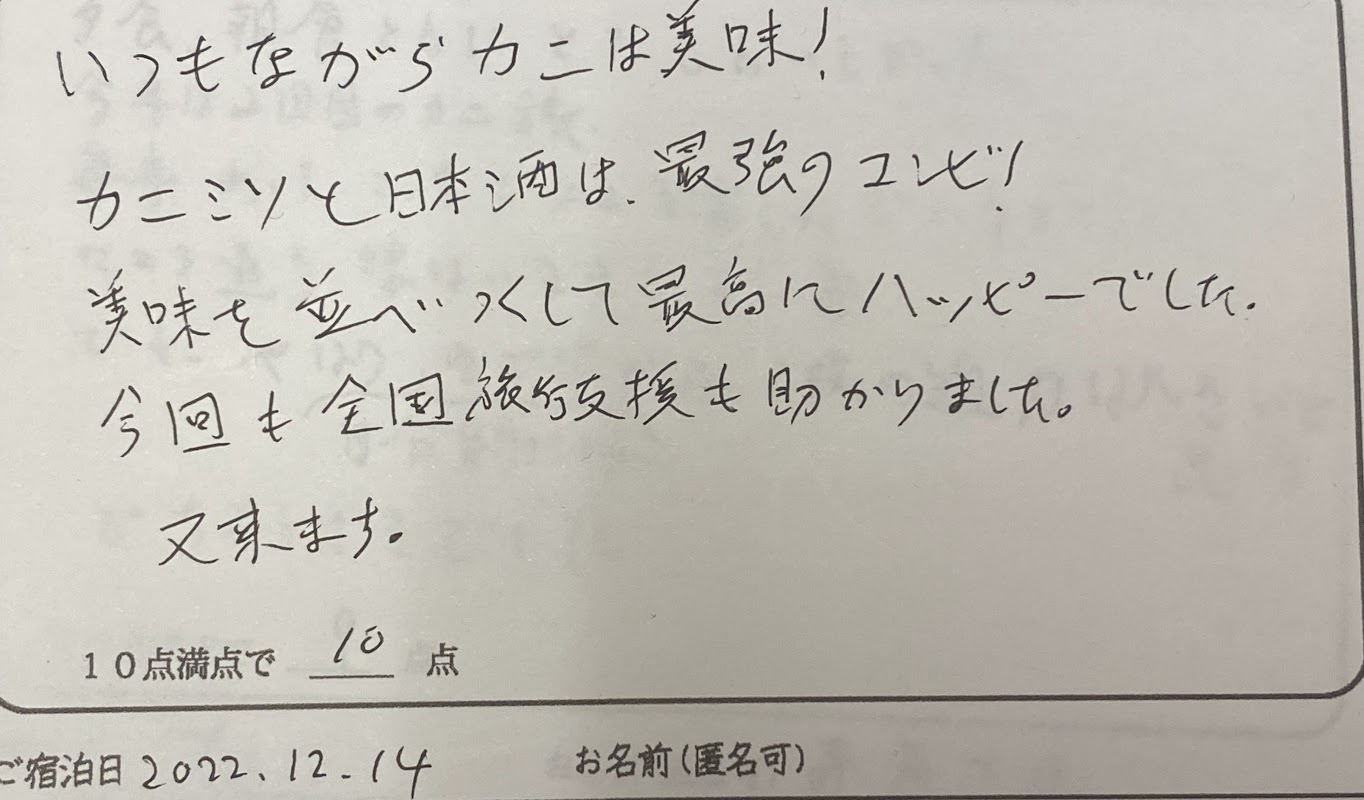 いつもながらカニは美味!
カニミソと日本酒は、最強のコンビ!
美味を並べつくして最高にハッピーでした。
今回も全国旅行支援も助かりました。
又来ます。
10点満点で 10 点
ご宿泊日 2022.12.14 お名前(匿名可)